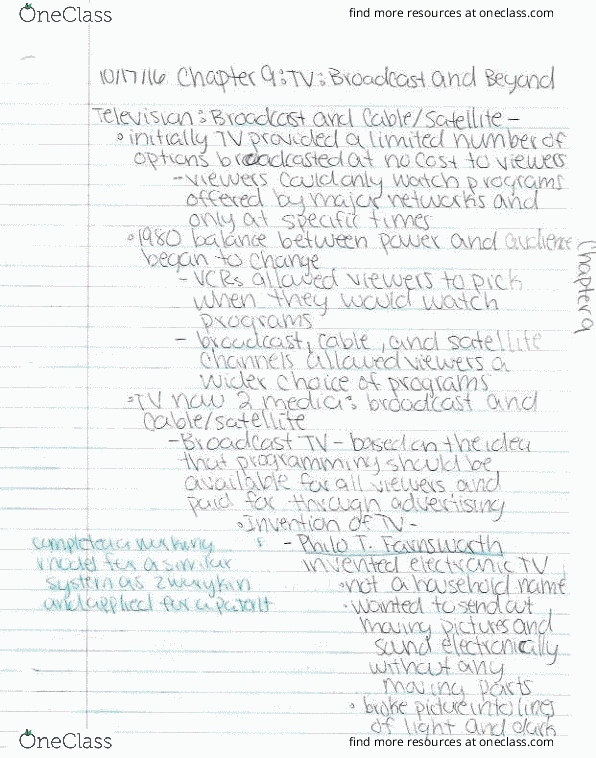 OneClass
find more resources at oneclass.com
10/17/16 Chapter 9: TV: Broadcast and Beyond
Television: Broadcast and Cable/Satellite -
◦ initially TV provided a limited number of
options broadcasted at no cost to viewers
- viewers could only watch programs
offered by major networks and
only at specific times
◦ 1980 balance between power and audience
began to change
- VCRs allowed viewers to pick
when they would watch
programs
- broadcast, cable, and satellite
channels allowed viewers a
wider choice of programs
◦ TV now 2 media: broadcast and
cable/satellite
- Broadcast TV - based on the idea
that programming should be
available for all viewers and
paid for through advertising
◦ Invention of TV -
- Philo T. Farnsworth
invented electronic TV
◦ not a household name
◦ wanted to send out
moving pictures and
sound electronically
without any
moving parts
◦ broke picture into lines
of light and dark
completed a working
model for a similar
system as Zworykin
and applied for a patent
Chapter 9
OneClass
find more resources at oneclass.com